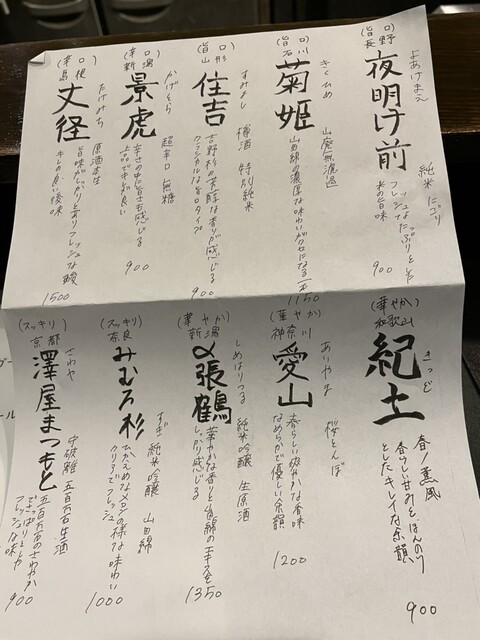 (旨口)
長野
よあけまえ
夜明け前
純米 にごり
フレッシュなたっぷりとした
米の旨味
900
(旨口)
石川
きくひめ
菊姫
山廃無濾過
山田錦の濃厚な味わいがクセになる一本
1150
(旨口)
山形
すみよし
住吉
樽酒 特別純米
吉野杉の芳醇な香りが感じる
クラシカルな旨口タイプ
900
(辛口)
新潟
かげとら
景虎
超辛口 無糖
辛さの中に旨さも感じる
900
(辛口)
島根
たけみち
丈径
原酒本生
旨味がガッチリと有りフレッシュな酸
キレの良い後味
1500
(華やか)
和歌山
きっど
紀土
春ノ薫風
春らしい甘みとほんのり
としたキレイな余韻
900
(華やか)
神奈川
あいやま
愛山
桜とんぼ
春らしい爽やかな香味
なめらかで優しい余韻
1200
(華やか)
新潟
しめはりつる
〆張鶴
純米吟醸 生原酒
華やかな香りと山田錦のエキスを
しっかり感じる
1350
(スッキリ)
奈良
みむろ杉
純米吟醸 山田錦
ひかえめなメロンの様な味わい
クリアでフレッシュ
1000
(スッキリ)
京都
さわや
澤屋まつもと
守破離 五百万石 生酒
五百万石のさわやか
でさっぱりとした
フレッシュな味
900